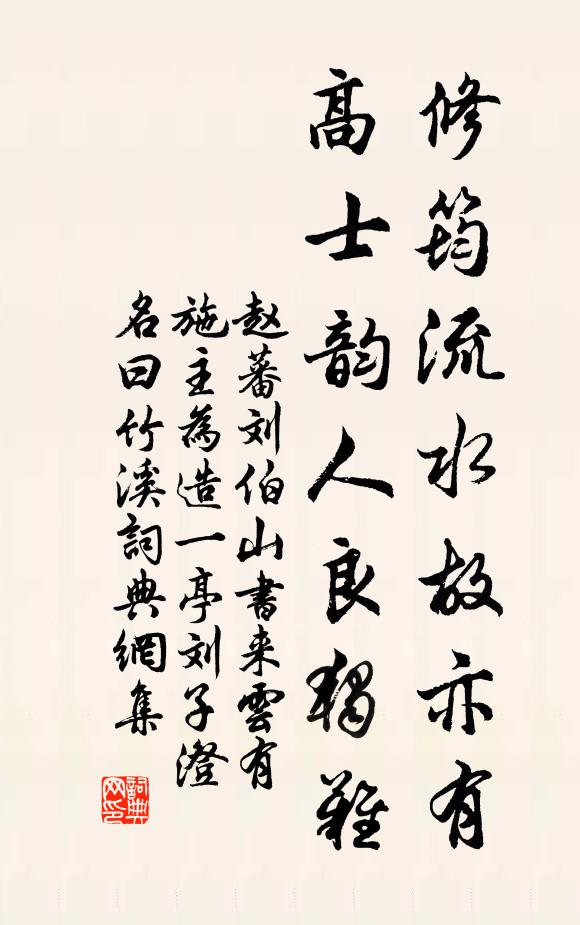 修筠流水故亦有
高士韵人良独難
赵蕃刘伯山書来雲有
施主為造一亭刘子澄
名曰竹溪詞典網集
詞典网印